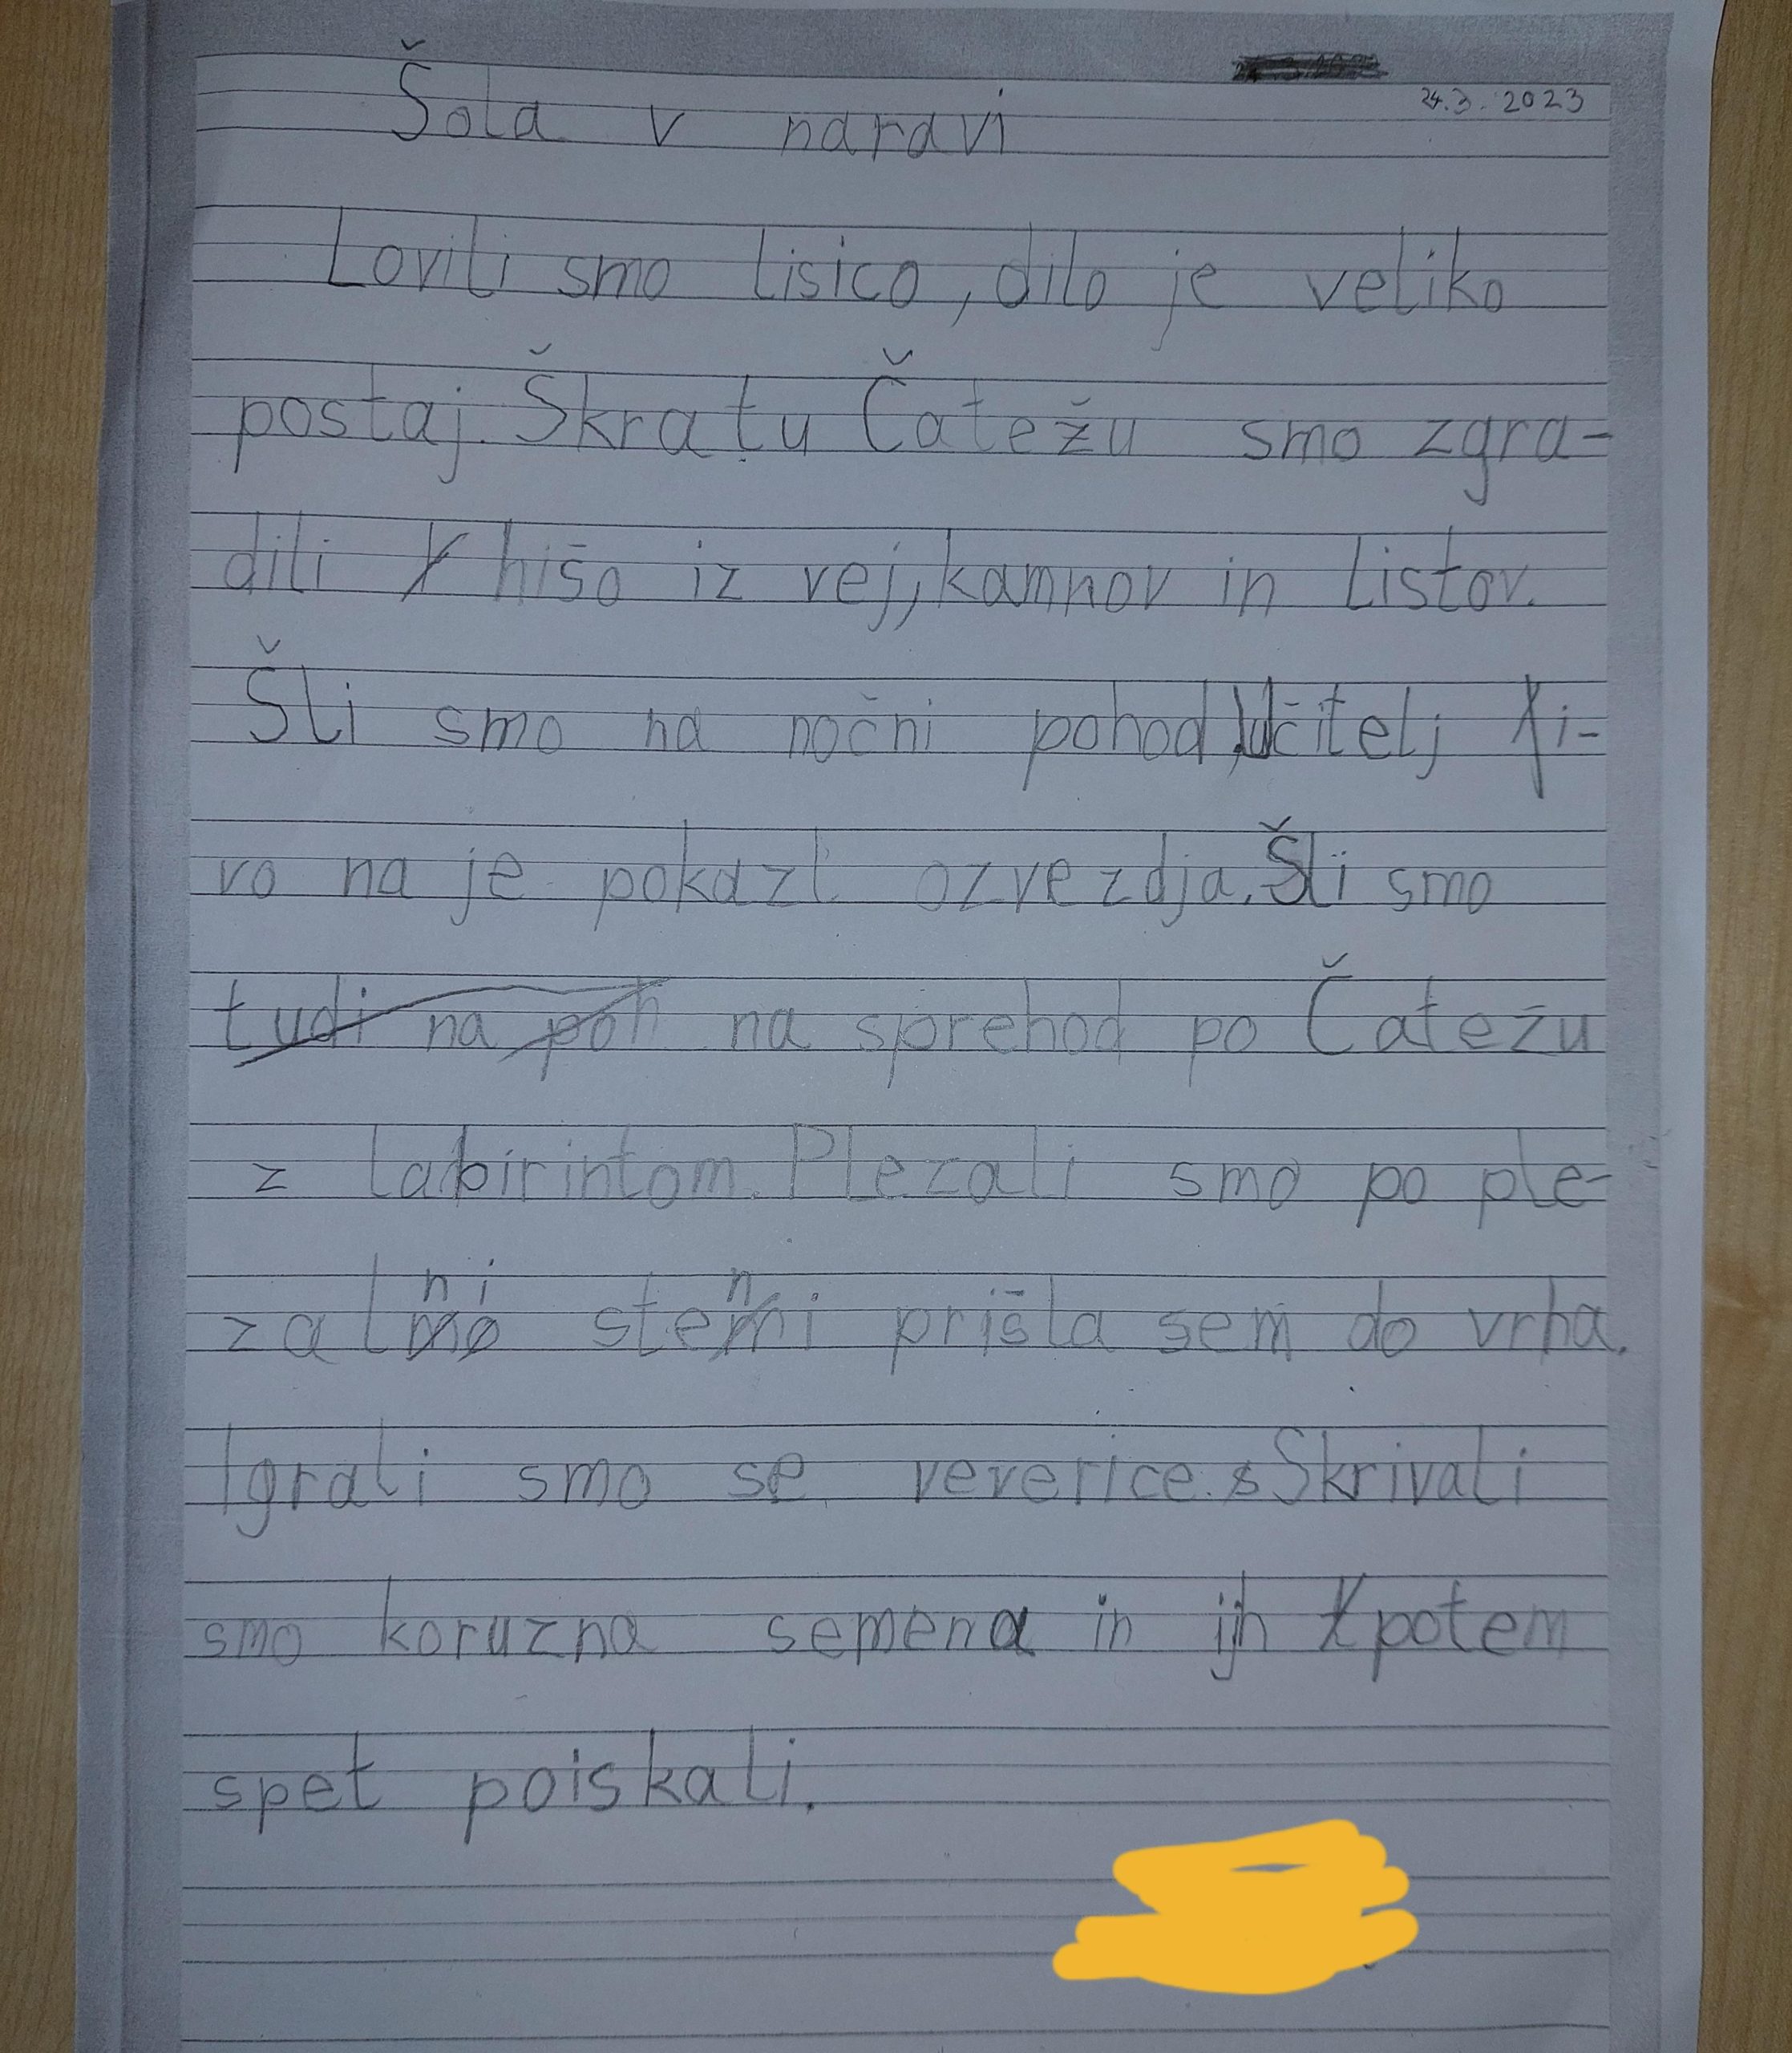 24.3.2023
Šola v naravi
Lovili smo lisico, dilo je veliko
postaj. Škratu Čatežu smo zgra-
dili hišo iz vej, kamnov in listov.
Šli smo na nočni pohod, učitelj
vo na je pokazl ozvezdja. Šli smo
na sprehod po Čatežu
z labirintom. Plezali smo po ple-
zalni steni prišla sem do vrha.
Igrali smo se veverice. Skrivali
smo koruzna semena in jih potem
spet poiskali.